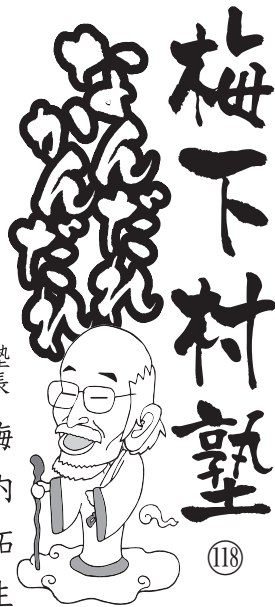 梅下村塾
⑱
なんだれ
かんだれ
塾長 梅内拓生